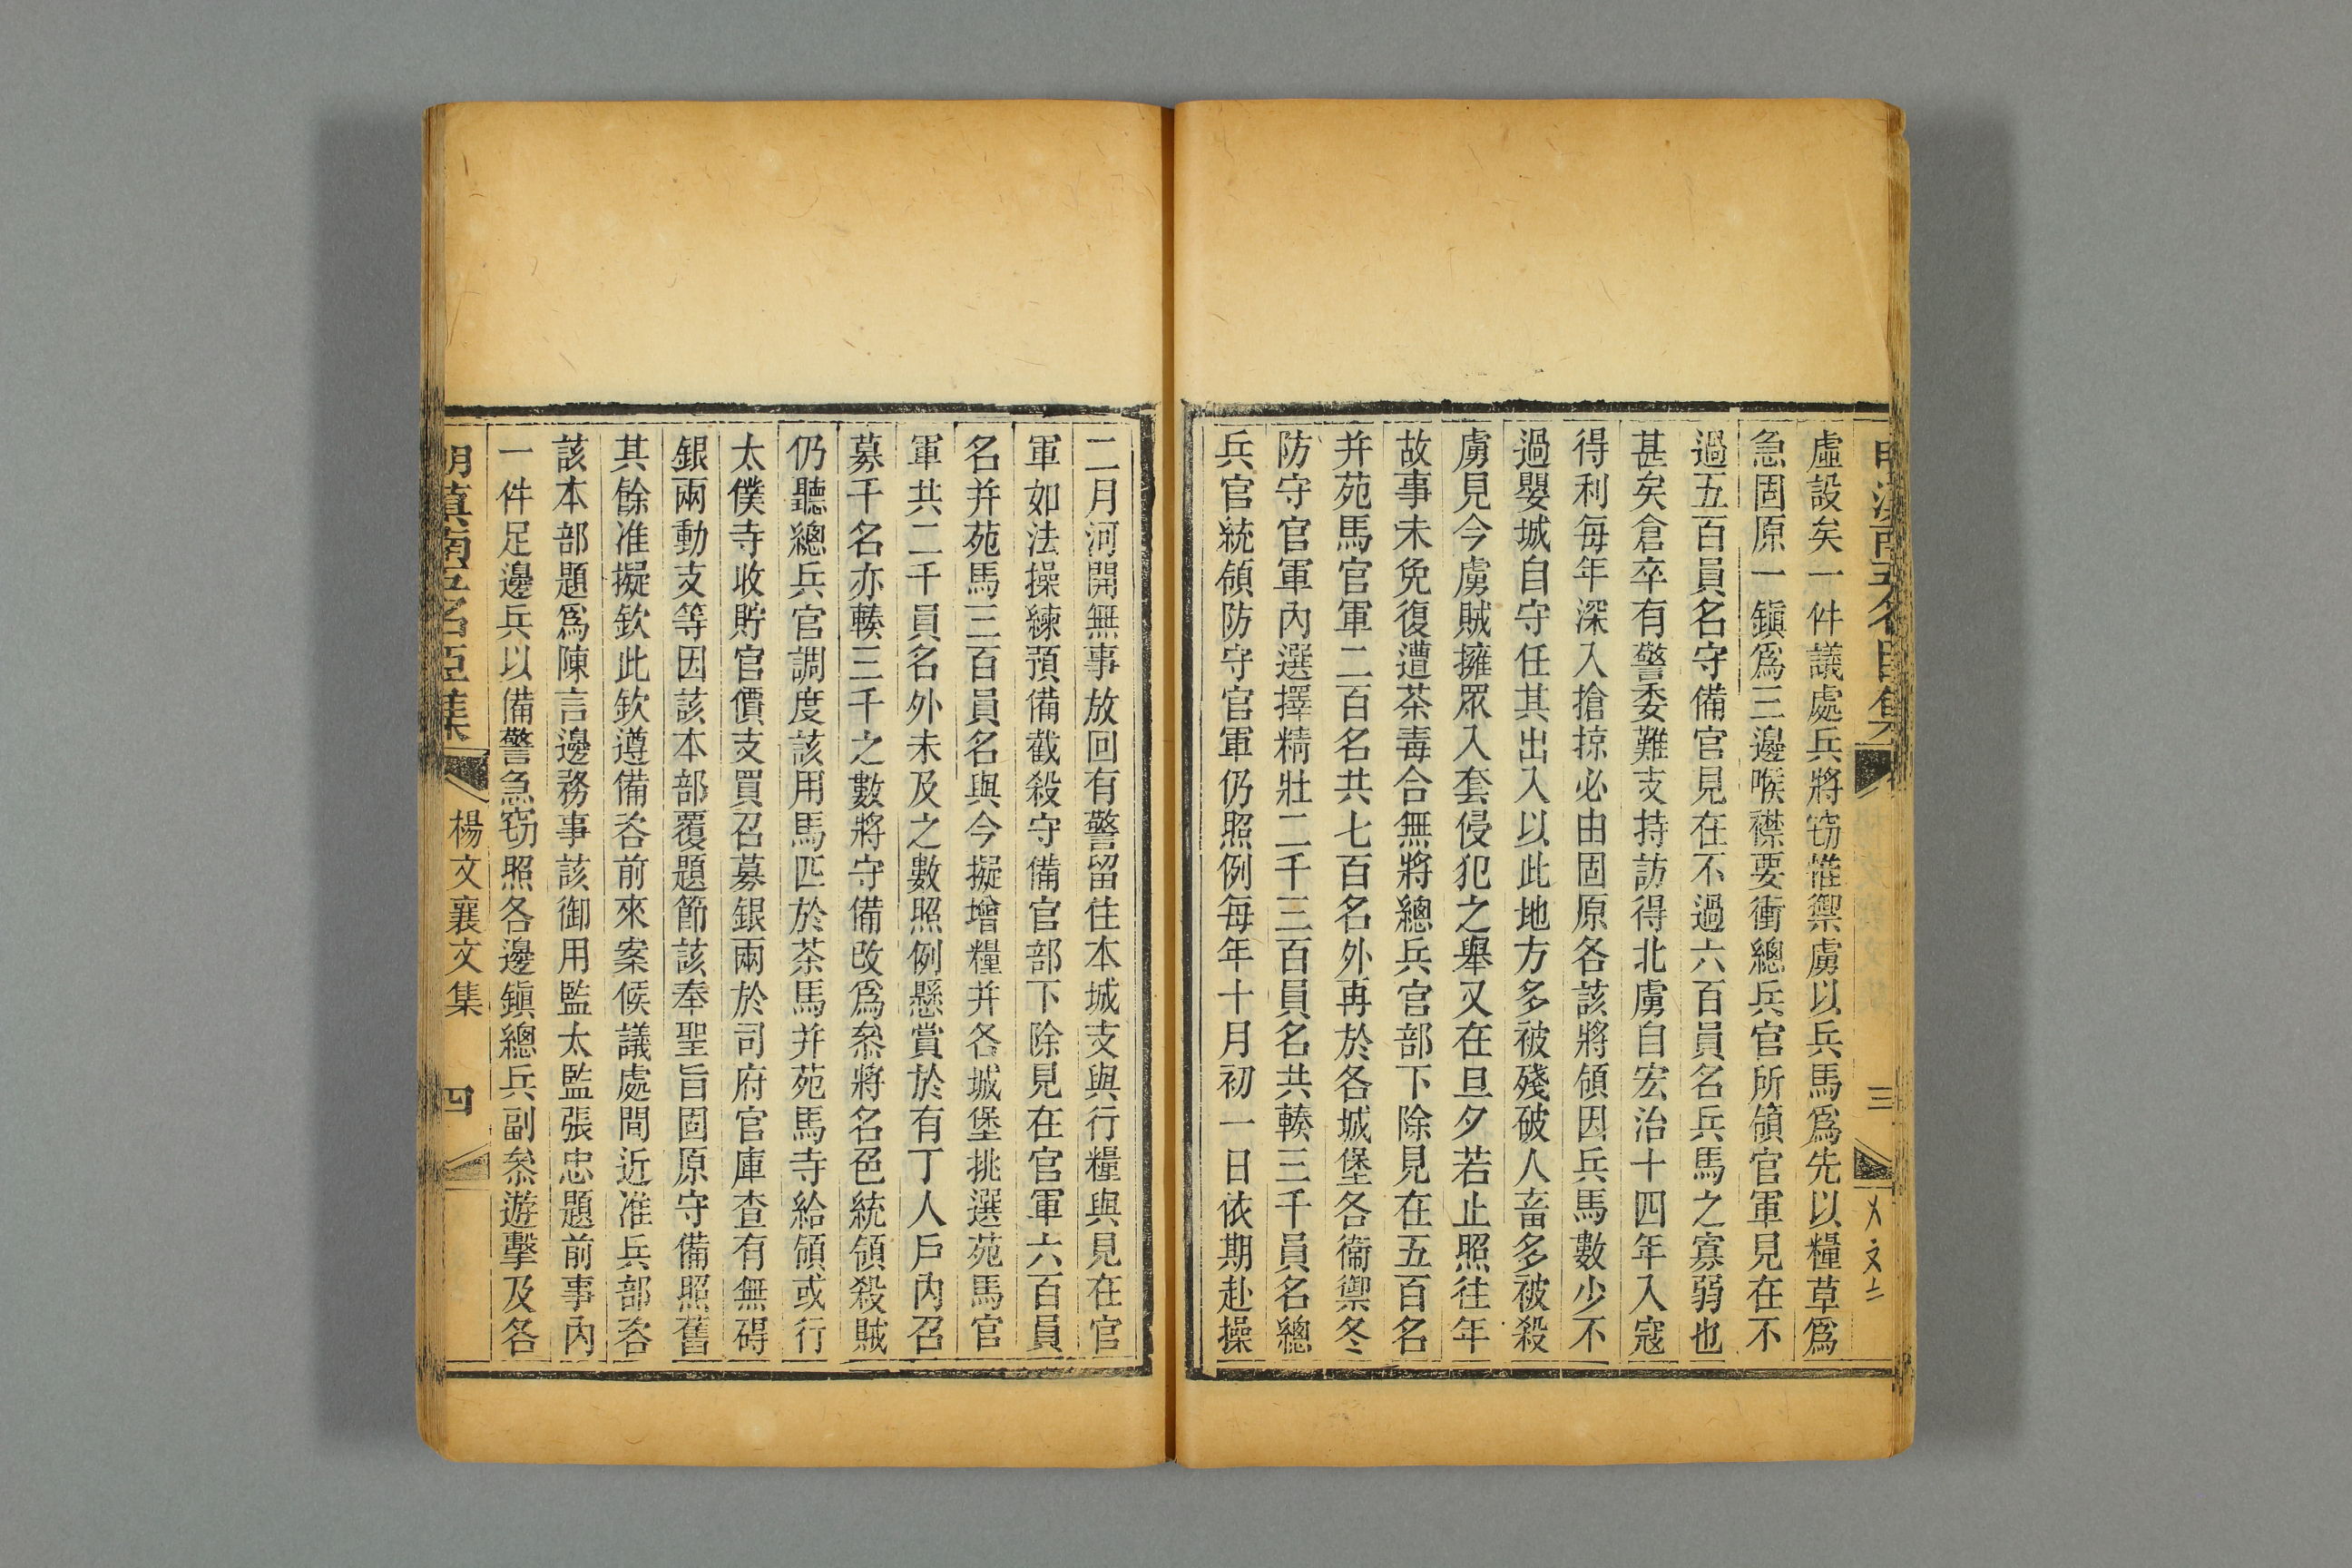 虛設矣一件議處兵將窃惟禦虜以兵馬爲先以糧草爲
急固原一鎭爲三邊喉襟要衝總兵官所領官軍見在不
過五百員名守備官見在不過六百員名兵馬之寡弱也
甚矣倉卒有警委難支持訪得北虜自宏治十四年入寇
得利每年深入搶掠必由固原各該將領因兵馬數少不
過嬰城自守任其出入以此地方多被殘破人畜多被殺
虜見今虜賊擁眾入套侵犯之舉又在旦夕若止照往年
故事未免復遭荼毒合無將總兵官部下除見在五百名
并苑馬官軍二百名共七百名外再於各城堡各衞禦冬
防守官軍內選擇精壯二千三百員名共輳三千員名總
兵官統領防守官軍仍照例每年十月初一日依期赴操
二月河開無事放回有警留住本城支與行糧與見在官
軍如法操練預備截殺守備官部下除見在官軍六百員
名并苑馬三百員名與今擬增糧并各城堡挑選苑馬官
軍共二千員名外未及之數照例懸賞於有丁人戶內召
募千名亦輳三千之數將守備改爲叅將名色統領殺賊
仍聽總兵官調度該用馬匹於茶馬并苑馬寺給領或行
太僕寺收貯官價支買召募銀兩於司府官庫查有無碍
銀兩動支等因該本部覆題節該奉聖旨固原守備照舊
其餘准擬欽此欽遵備咨前來案候議處間近准兵部咨
該本部題爲陳言邊務事該御用監太監張忠題前事內
一件足邊兵以備警急窃照各邊鎭總兵副叅遊擊及各
明滇南五名臣集 楊文襄文集 四